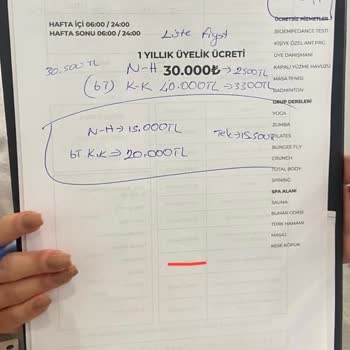 HAFTA İÇİ 06:00 / 24:00
HAFTA SONU 06:00 / 24:00
Liste fiyat
1 YILLIK ÜYELİK ÜCRETİ
30.500TL
N-H 30.000₺ → 2500TL
(6T) K-K 40.000TL → 3300TL
N-H → 15.000TL
Tek → 15.500TL
6T K.K → 20.000TL
ÜCRETSİZ HİZMETLER
BİOEMPEDANCE TESTİ
KİŞİYE ÖZEL ANT.PRG
ÜYE DANIŞMANI
KAPALI YÜZME HAVUZU
MASA TENİSİ
BADMİNTON
GRUP DERSLERİ
YOGA
ZUMBA
PILATES
BUNGEE FLY
CRUNCH
TOTAL BODY
SPİNİNG
SPA ALANI
SAUNA
BUHAR ODASI
TÜRK HAMAMI
MASAJ
KESE KÖPÜK